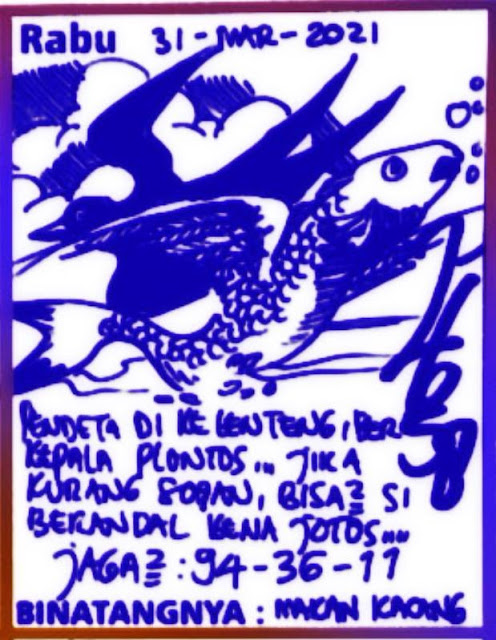 Rabu 31-MAR-2021
PENDETA DI KELENTENG, BER
KEPALA PLONTOS... JIKA
KURANG SOPAN, BISA2 SI
BERANDAL KENA JOTOS....
JAGA2 : 94-36-11
BINATANGNYA : MAKAN KACANG